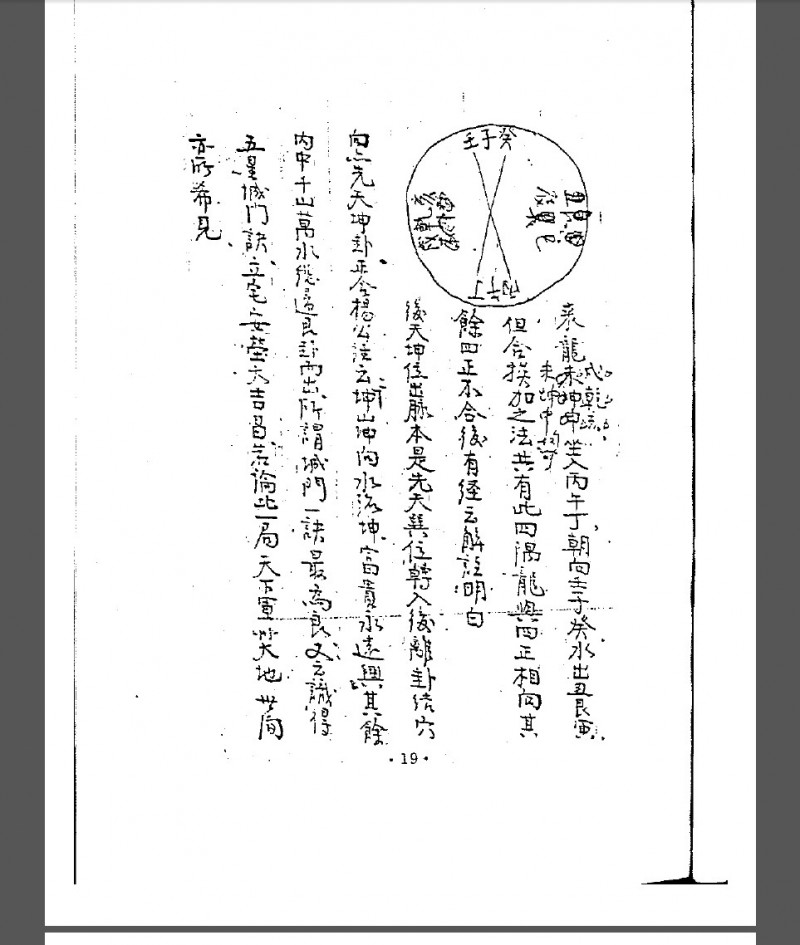 壬子癸
來龍未坤坤坐入丙午丁朝向壬子癸水出丑艮寅
未坤申
但合挨加之法共有此四隅龍與四正相向其
餘四正不合後有経云解註明白
後天坤位出脈本是先天巽位轉入後離卦结穴
向点先天坤卦正合楊公註云坤山坤向水流坤富貴永遠興其餘
内中千山萬水從邊良卦而出所謂城門一訣最為良又云識得
五星城門訣立宅安塋大吉昌若論此一局天下軍
地世間
亦所希見
·19·